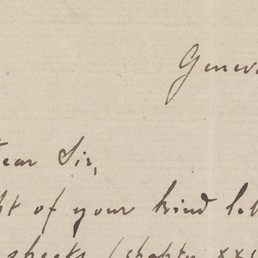 Geneva
Dear Sir,
of your kind
sheets (chapter xx